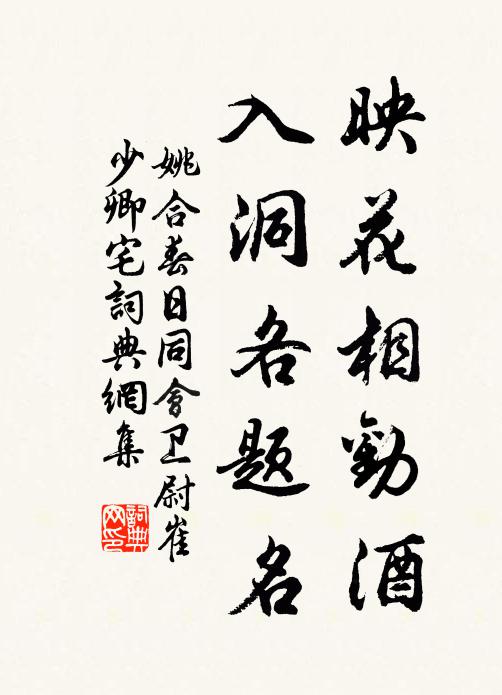 映花相勸酒
入洞各题名
姚合春日同會卫尉崔
少卿宅詞典網集
詞典
网印